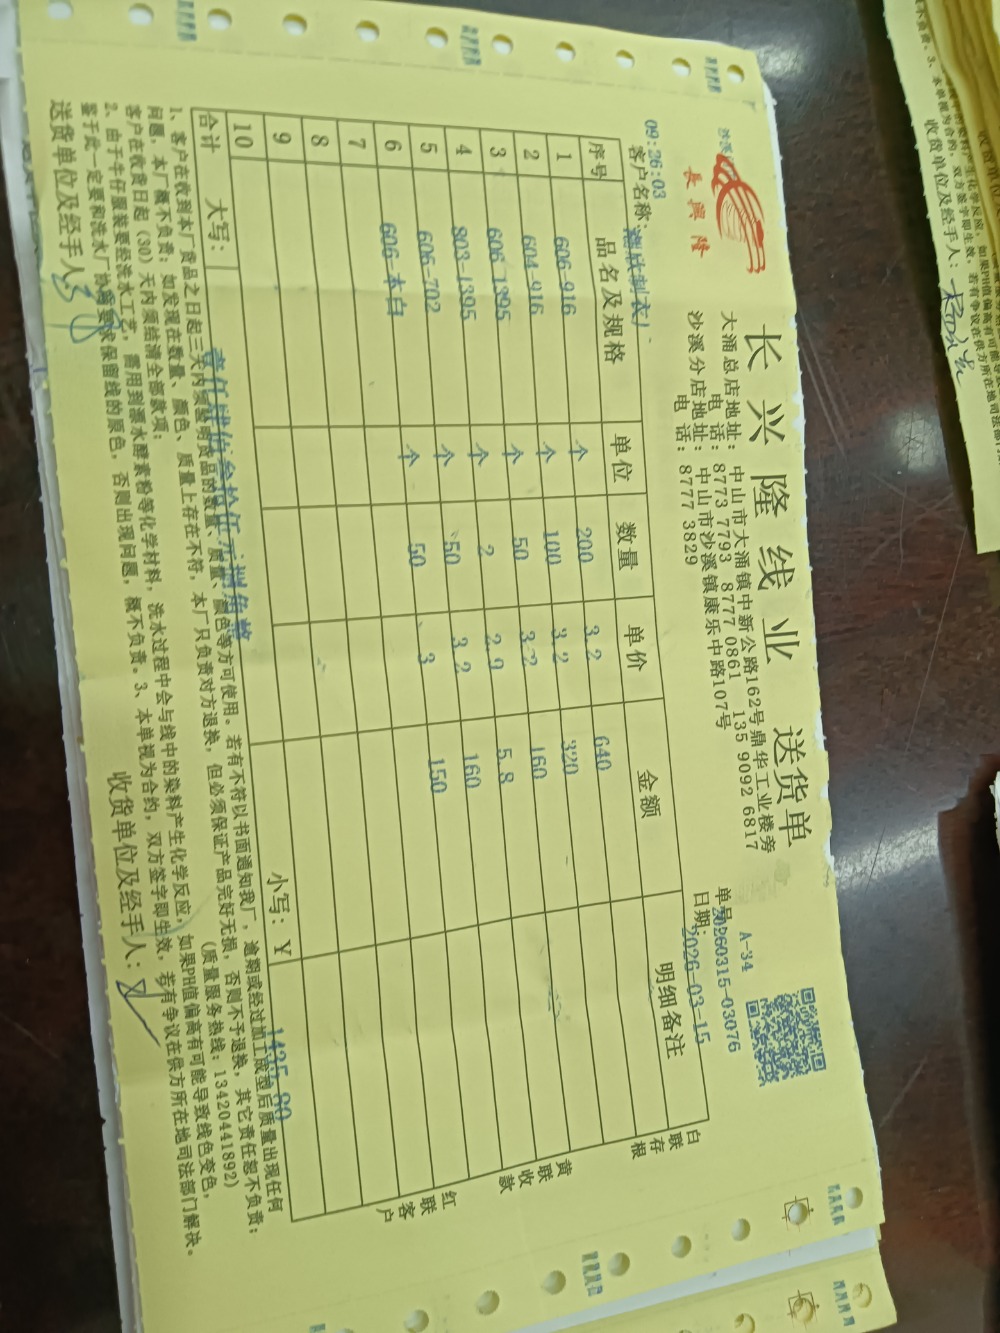 長興隆
长兴隆线业 送货单
大涌总店地址：中山市大涌镇中新公路162号鼎华工业楼旁
电话：8773 7793 8777 0861 135 9092 6817
沙溪分店地址：中山市沙溪镇康乐中路107号
电话：8777 3829
A-34
单号：20260315-03076
日期：2026-03-15
09:26:03
客户名称：
序号 品名及规格 单位 数量 单价 金额 明细备注
1 606-916 个 200 3.2 640
2 604-916 个 100 3.2 320
3 606-1395 个 50 3.2 160
4 803-1395 个 2 2.9 5.8
5 606-702 个 50 3.2 160
6 606-本白 个 50 3 150
7
8
9
10
合计 大写：壹仟肆佰叁拾伍元捌角整 小写：￥1435.80
白联存根
黄联收款
红联客户
1、客户在收到本厂货品之日起三天内须验明成品的数量、质量、颜色等方可使用。若有不符以书面通知我厂，逾期或经过加工成型后质量出现任何
问题，本厂概不负责；如发现在数量、颜色、质量上存在不符，本厂只负责对方退换，但必须保证产品完好无损，否则不予退换，其它责任恕不负责；
客户在收货日起（30）天内须结清全部款项；（质量服务热线：13420441892）
2、由于牛仔服装要经洗水工艺，需用到漂水酵素粉等化学材料，洗水过程中会与线中的染料产生化学反应，如果PH值偏高有可能导致线色变色，
鉴于此一定要和洗水厂协商要求保留线的原色，否则出现问题，概不负责。3、本单视为合约，双方签字即生效，若有争议在供方所在地司法部门解决。
送货单位及经手人： 收货单位及经手人：
收货单位及经手人：